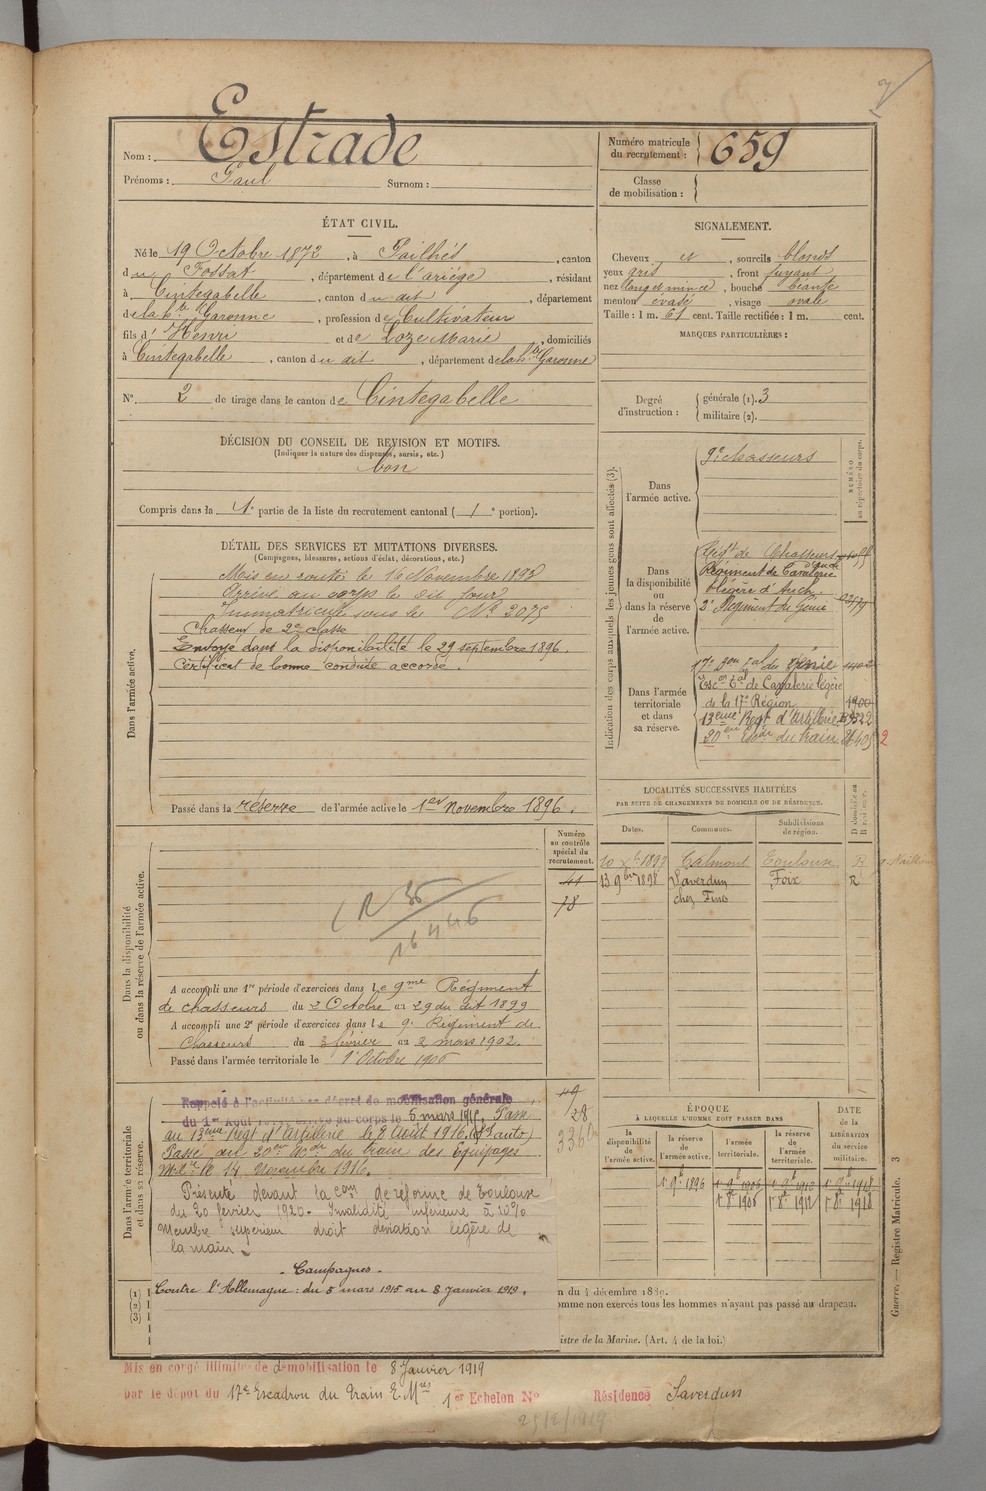 Nom : Estrade
Prénoms : Paul Surnom :
Numéro matricule du recrutement : 659
Classe de mobilisation :
ÉTAT CIVIL.
Né le 19 Octobre 1872, à Pailhès, canton
du Fossat, département de l'ariège, résidant
à Cintegabelle, canton du dit, département
de la hte Garonne, profession de Cultivateur
fils d' Henri et de Loze Marie, domiciliés
à Cintegabelle, canton du dit, département de la hte Garonne
N° 2 de tirage dans le canton de Cintegabelle
SIGNALEMENT.
Cheveux et, sourcils blonds
yeux gris, front fuyant
nez long et mince, bouche béante
menton évasé, visage ovale
Taille : 1 m. 61 cent. Taille rectifiée : 1 m. cent.
MARQUES PARTICULIÈRES :
Degré d'instruction : générale (1). 3
militaire (2).
DÉCISION DU CONSEIL DE REVISION ET MOTIFS.
(Indiquer la nature des dispenses, sursis, etc.)
bon
Compris dans la 1e partie de la liste du recrutement cantonal ( / e portion).
DÉTAIL DES SERVICES ET MUTATIONS DIVERSES.
(Campagnes, blessures, actions d'éclat, décorations, etc.)
Dans l'armée active.
Mis en route le 16 Novembre 1893
Arrivé au corps le dit jour
Immatriculé sous le N° 2075
Chasseur de 2e classe
Envoyé dans la disponibilité le 29 septembre 1896.
Certificat de bonne conduite accordé.
Passé dans la réserve de l'armée active le 1er Novembre 1896.
Indication des corps auxquels les jeunes gens sont affectés (3).
NUMÉRO au répertoire du corps.
Dans l'armée active.
9e chasseurs
Dans la disponibilité ou dans la réserve de l'armée active.
Régt de Chasseurs
Régiment de Cavalerie
légère d'Auch.
2e Régiment du Génie
Dans l'armée territoriale et dans sa réserve.
17e Bon tal du Génie 1402
Escon tal de Cavalerie légère
de la 17e Région 1900
13eme Régt d'Artillerie
20eme Escdr du train
LOCALITÉS SUCCESSIVES HABITÉES
PAR SUITE DE CHANGEMENTS DE DOMICILE OU DE RÉSIDENCE.
Dates. Communes. Subdivisions de région. D domicile ou R résidence.
10 Xbre 1897 Calmont Toulouse R
13 9bre 1898 Saverdun Foix R
chez Fines
Dans la disponibilité ou dans la réserve de l'armée active.
Numéro au contrôle spécial du recrutement.
41
78
A accompli une 1re période d'exercices dans le 9me Régiment
de chasseurs du 2 Octobre au 29 du dit 1899
A accompli une 2e période d'exercices dans le 9e Régiment de
Chasseurs du 3 février au 2 mars 1902.
Passé dans l'armée territoriale le 1er Octobre 1906
Dans l'armée territoriale et dans sa réserve.
Rappelé à l'activité par décret de mobilisation générale
du 1er Août corps le 5 mars 1915. Passé
au 13eme Régt d'Artillerie le 8 Août 1916. (Sst auto)
Passé au 20eme Escon du train des Équipages
Mres le 14 Novembre 1916.
Présenté devant la Com de réforme de Toulouse
du 20 février 1920. Invalidité inférieure à 10%
Membre supérieur droit déviation légère de
la main.
- Campagnes -
Contre l'Allemagne : du 5 mars 1915 au 8 Janvier 1919.
ÉPOQUE
À LAQUELLE L'HOMME DOIT PASSER DANS
la disponibilité de l'armée active. la réserve de l'armée active. l'armée territoriale. la réserve de l'armée territoriale.
DATE de la LIBÉRATION du service militaire.
1er 9b 1896 1er 9b 1906 1er 9b 1912 1er 9b 1918
1er 8b 1906 1er 8b 1912 1er 8b 1918
(1)
(2)
(3)
n du 4 décembre 1889.
omme non exercés tous les hommes n'ayant pas passé au drapeau.
istre de la Marine. (Art. 4 de la loi.)
Guerre. — Registre Matricule. 3
Mis en congé illimité de démobilisation le 8 Janvier 1919
par le dépôt du 17e Escadron du Train E. Mres 1er Echelon N° Résidence Saverdun